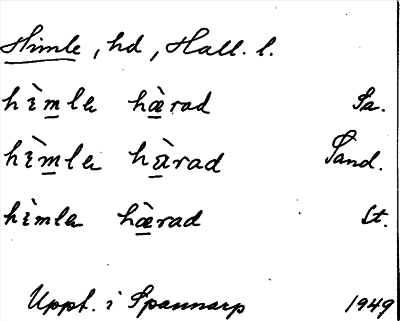 Himle, hd, Hall. l.
hìmla hærad Sa.
hìmla hærad Sand.
hìmla hærad St.
Uppt. i Spannarp 1949